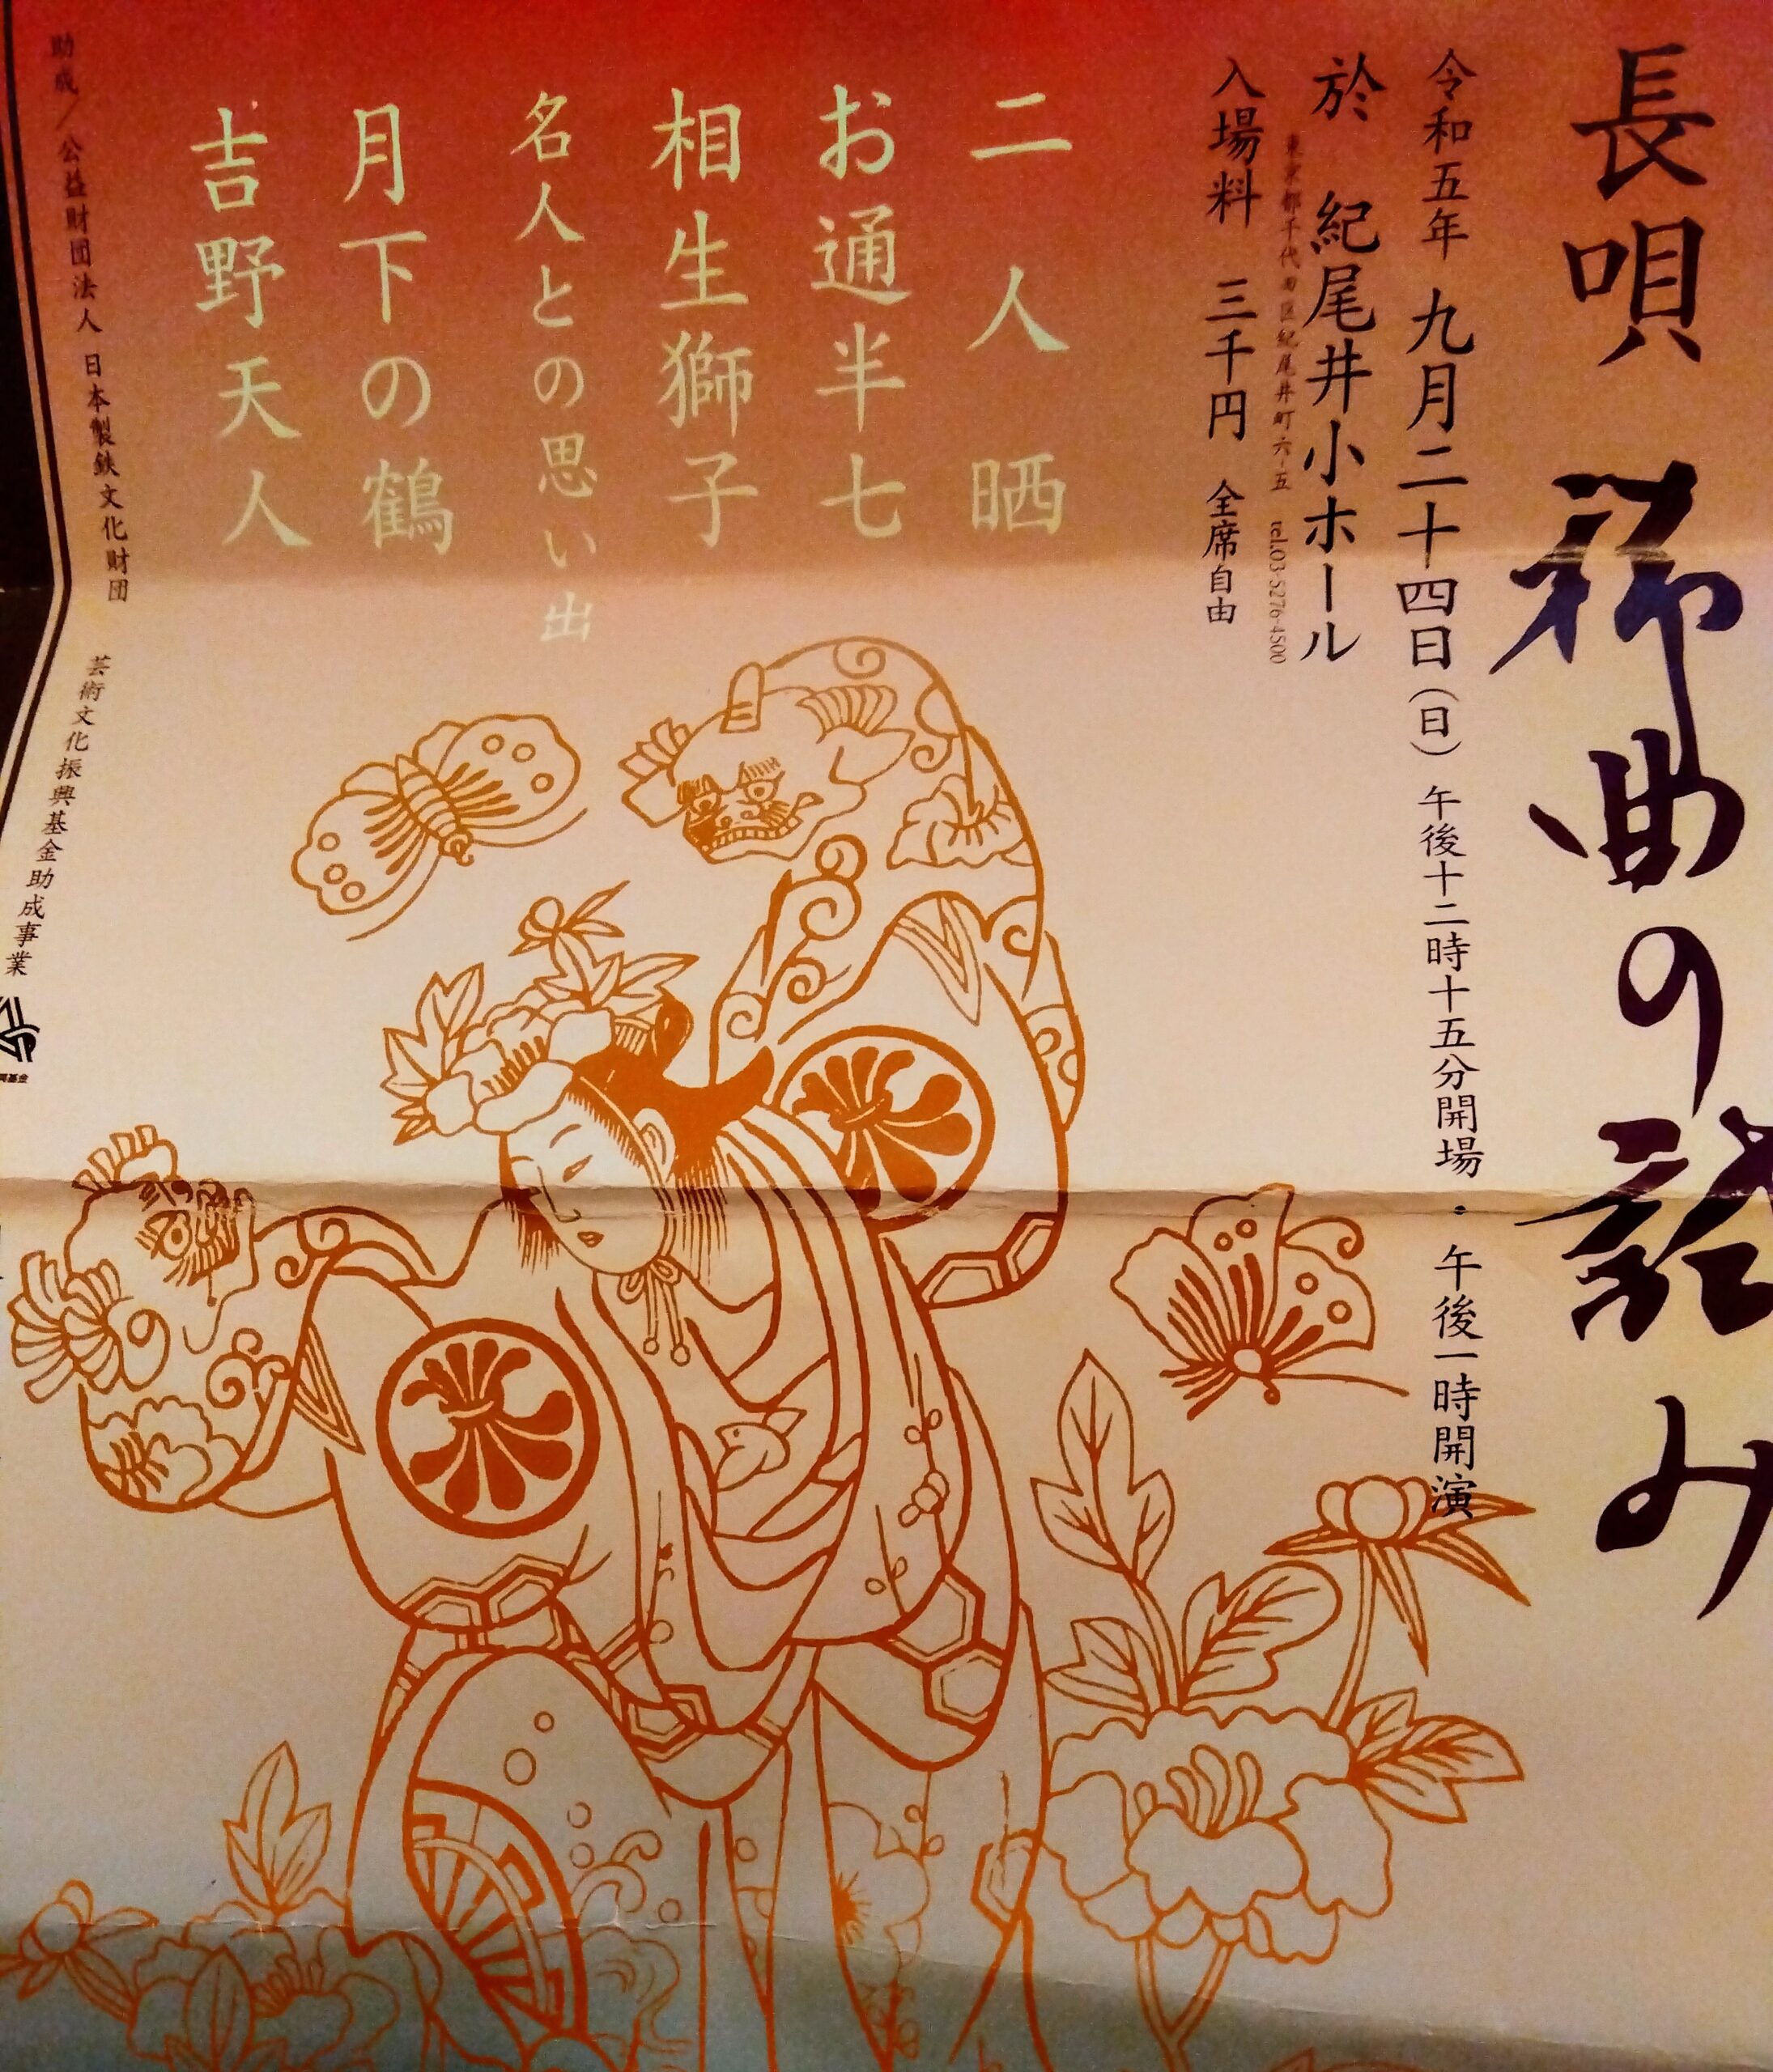 長唄 稀曲の試み
令和五年 九月二十四日(日) 午後十二時十五分開場・午後一時開演
於 紀尾井小ホール
東京都千代田区紀尾井町六-五 tel.03-5276-4500
入場料 三千円 全席自由
二人晒
お通半七
相生獅子
名人との思い出
月下の鶴
吉野天人
助成/公益財団法人 日本製鉄文化財団
芸術文化振興基金助成事業